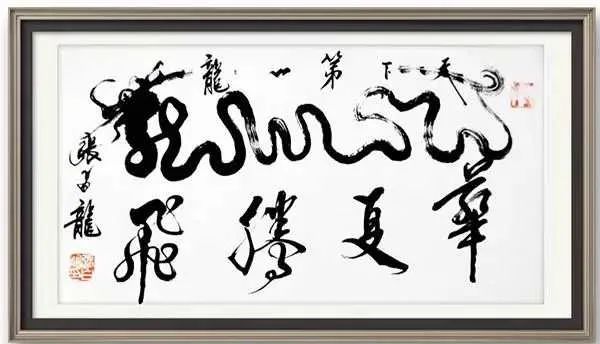 天下第一龍
華夏騰飛
張 龍